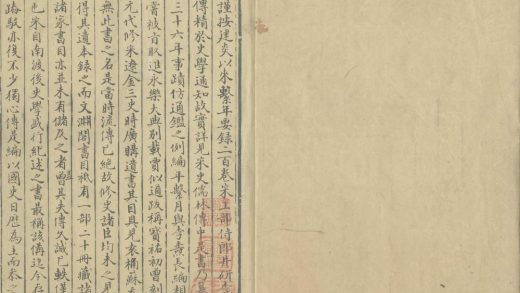 謹按建炎以来繫年要録二百卷宋工部侍郎井研李
傳精於史學通知故實詳見宋史儒林傳中是書乃
三十六年事蹟仿通鑑之例編年繫月與李燾長編相
嘗被旨取進永樂大典别載賈似道跋稱寶祐初曽刻
元代修宋遼金三史時廣購遺書其目具見袁桷蘇
無此書之名是當時流傳已絶故修史諸臣均未之見
得其遺本録之而文淵閣書目祇有一部二十冊藏諸
諸家書目亦並未有儲及之者蓋其失傳久誠已軼僅
也宋自南渡後史學盛行紀述之書最稱該備迄今存
踳駁亦復不少獨心傳是編以國史日厯為主而参之